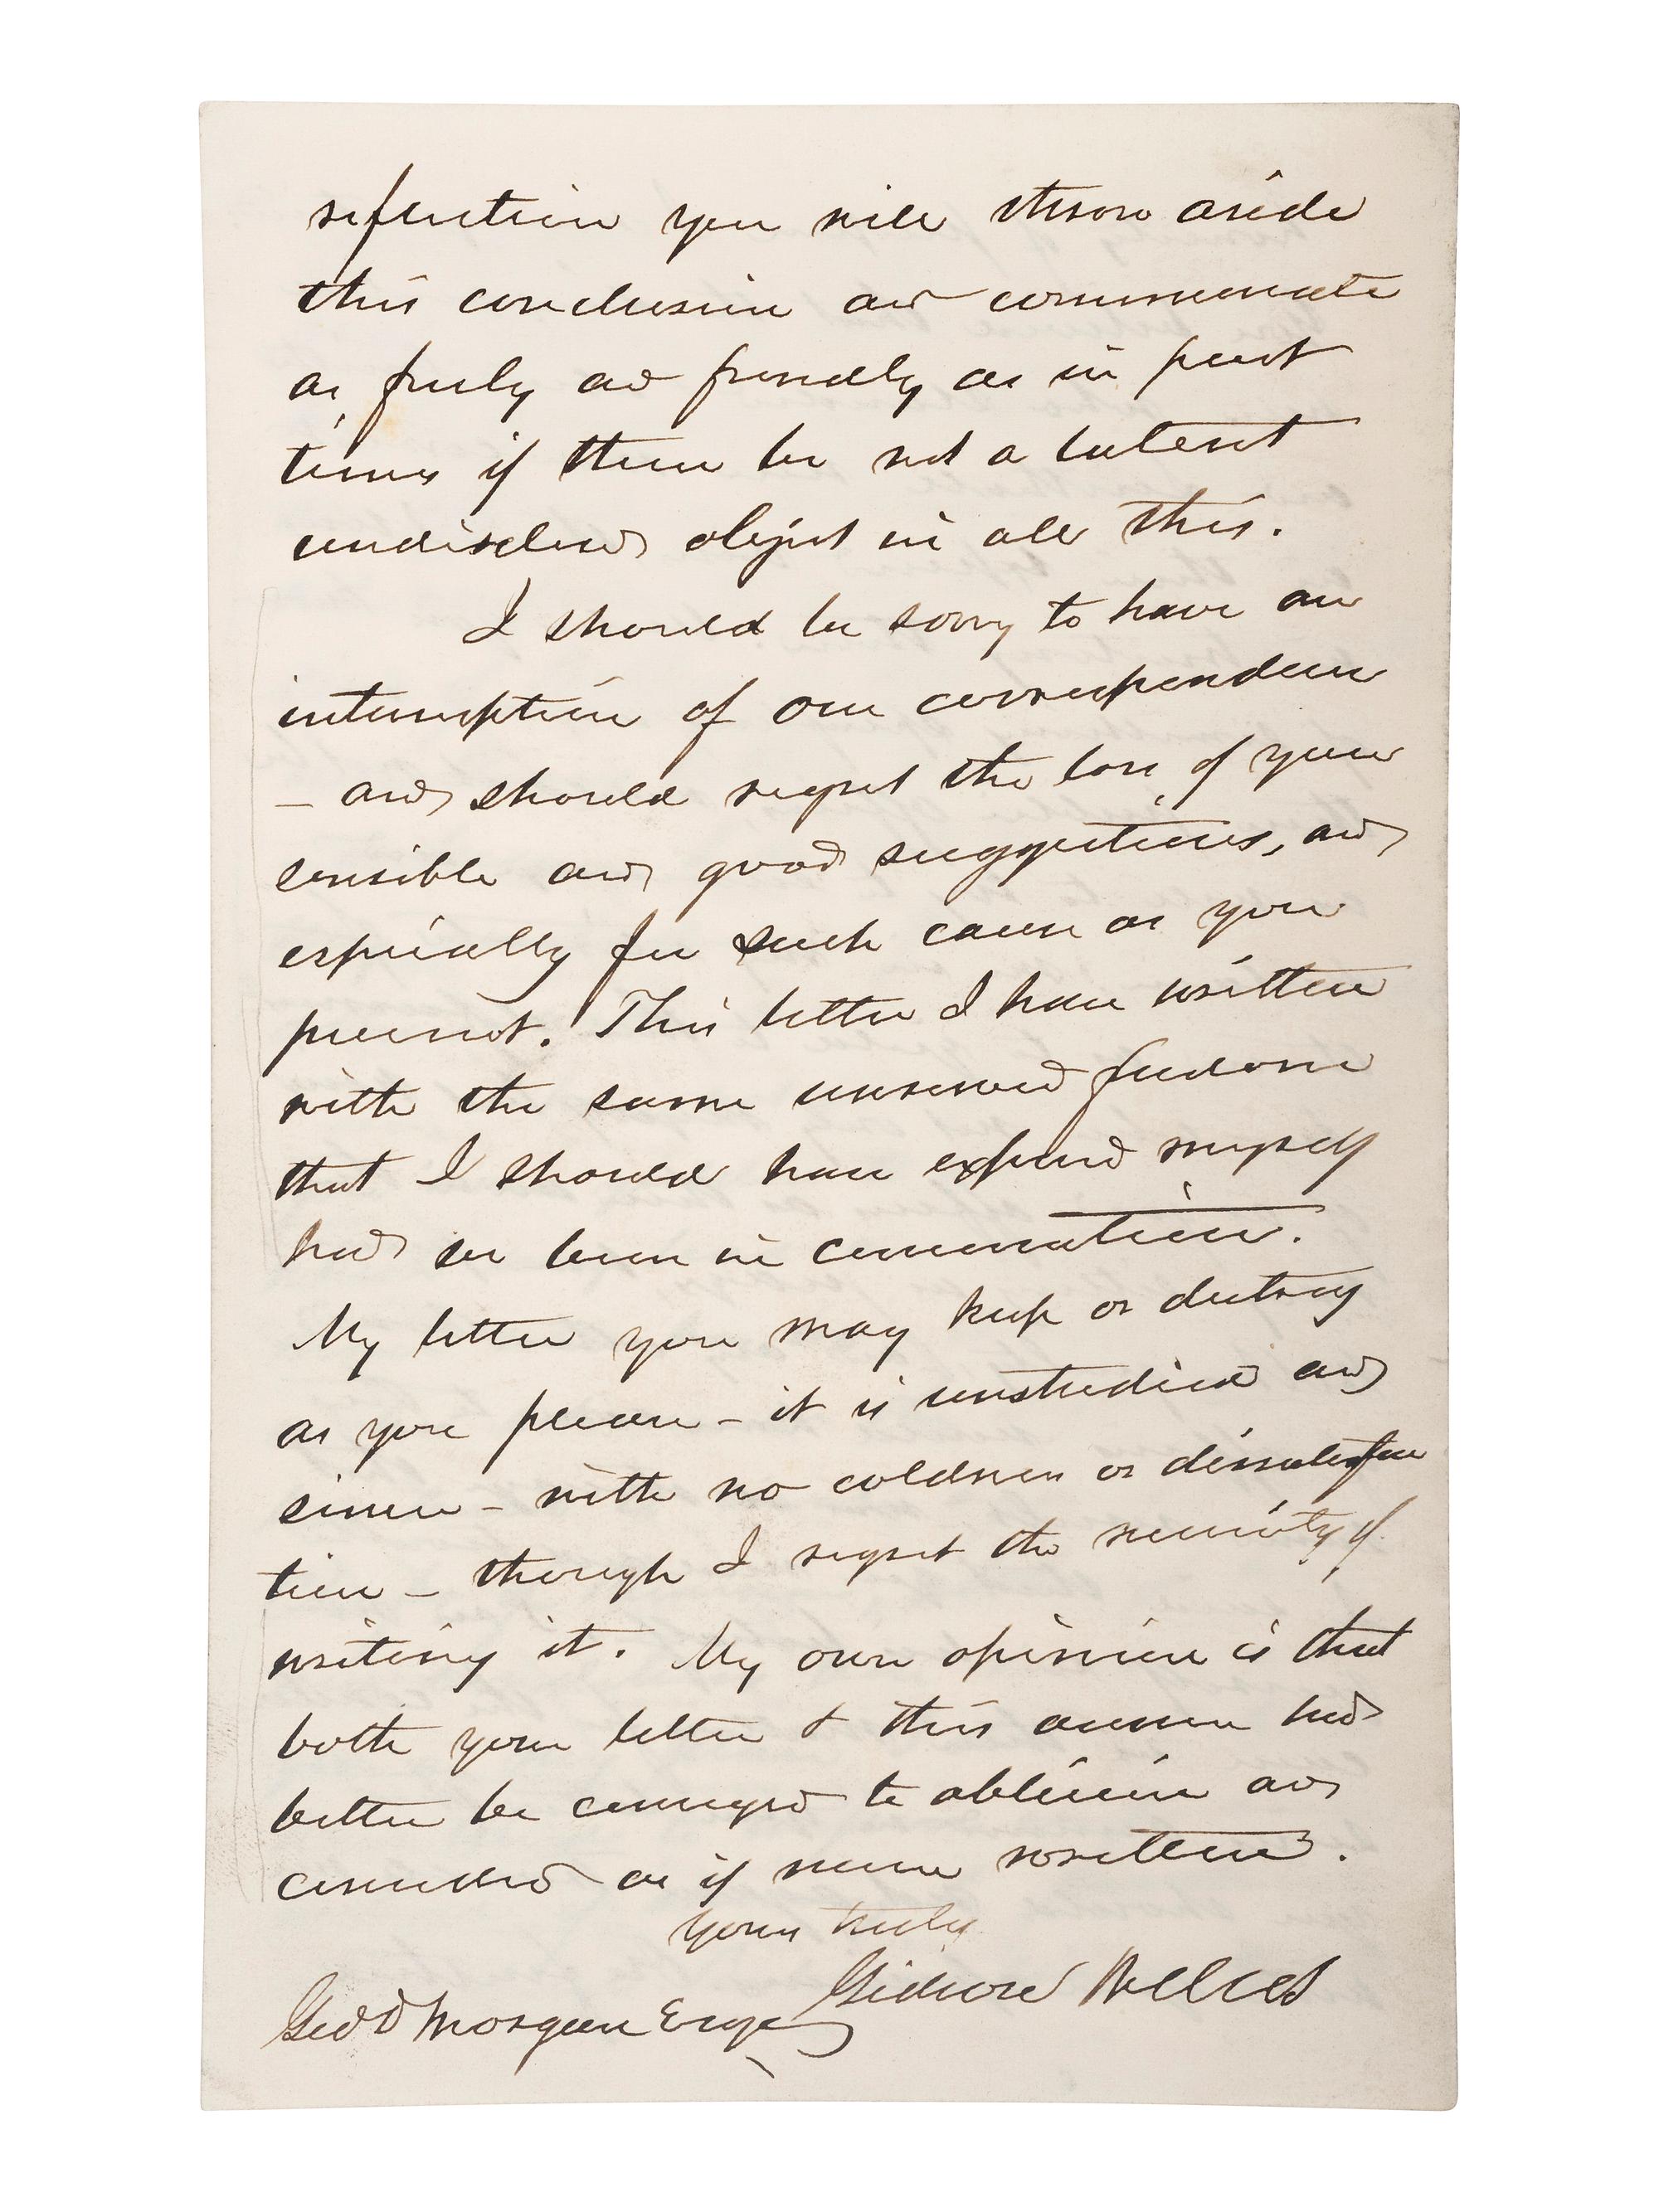 reflection you will throw aside
this conclusion and communicate
as freely and friendly as in past
times if there be not a latent
undisclosed object in all this.
I should be sorry to have an
interruption of our correspondence
— and should regret the loss of your
sensible and good suggestions, and
especially for such cause as you
present. This letter I have written
with the same unreserved freedom
that I should have expressed myself
had we been in conversation.
My letter you may keep or destroy
as you please – it is unstudied and
sincere – with no coldness or dissatisfac
tion – though I regret the necessity of
writing it. My own opinion is that
both your letter & this answer had
better be consigned to oblivion and
considered as if never written.
Yours truly
Gideon Welles
Geo D Morgan Esqr